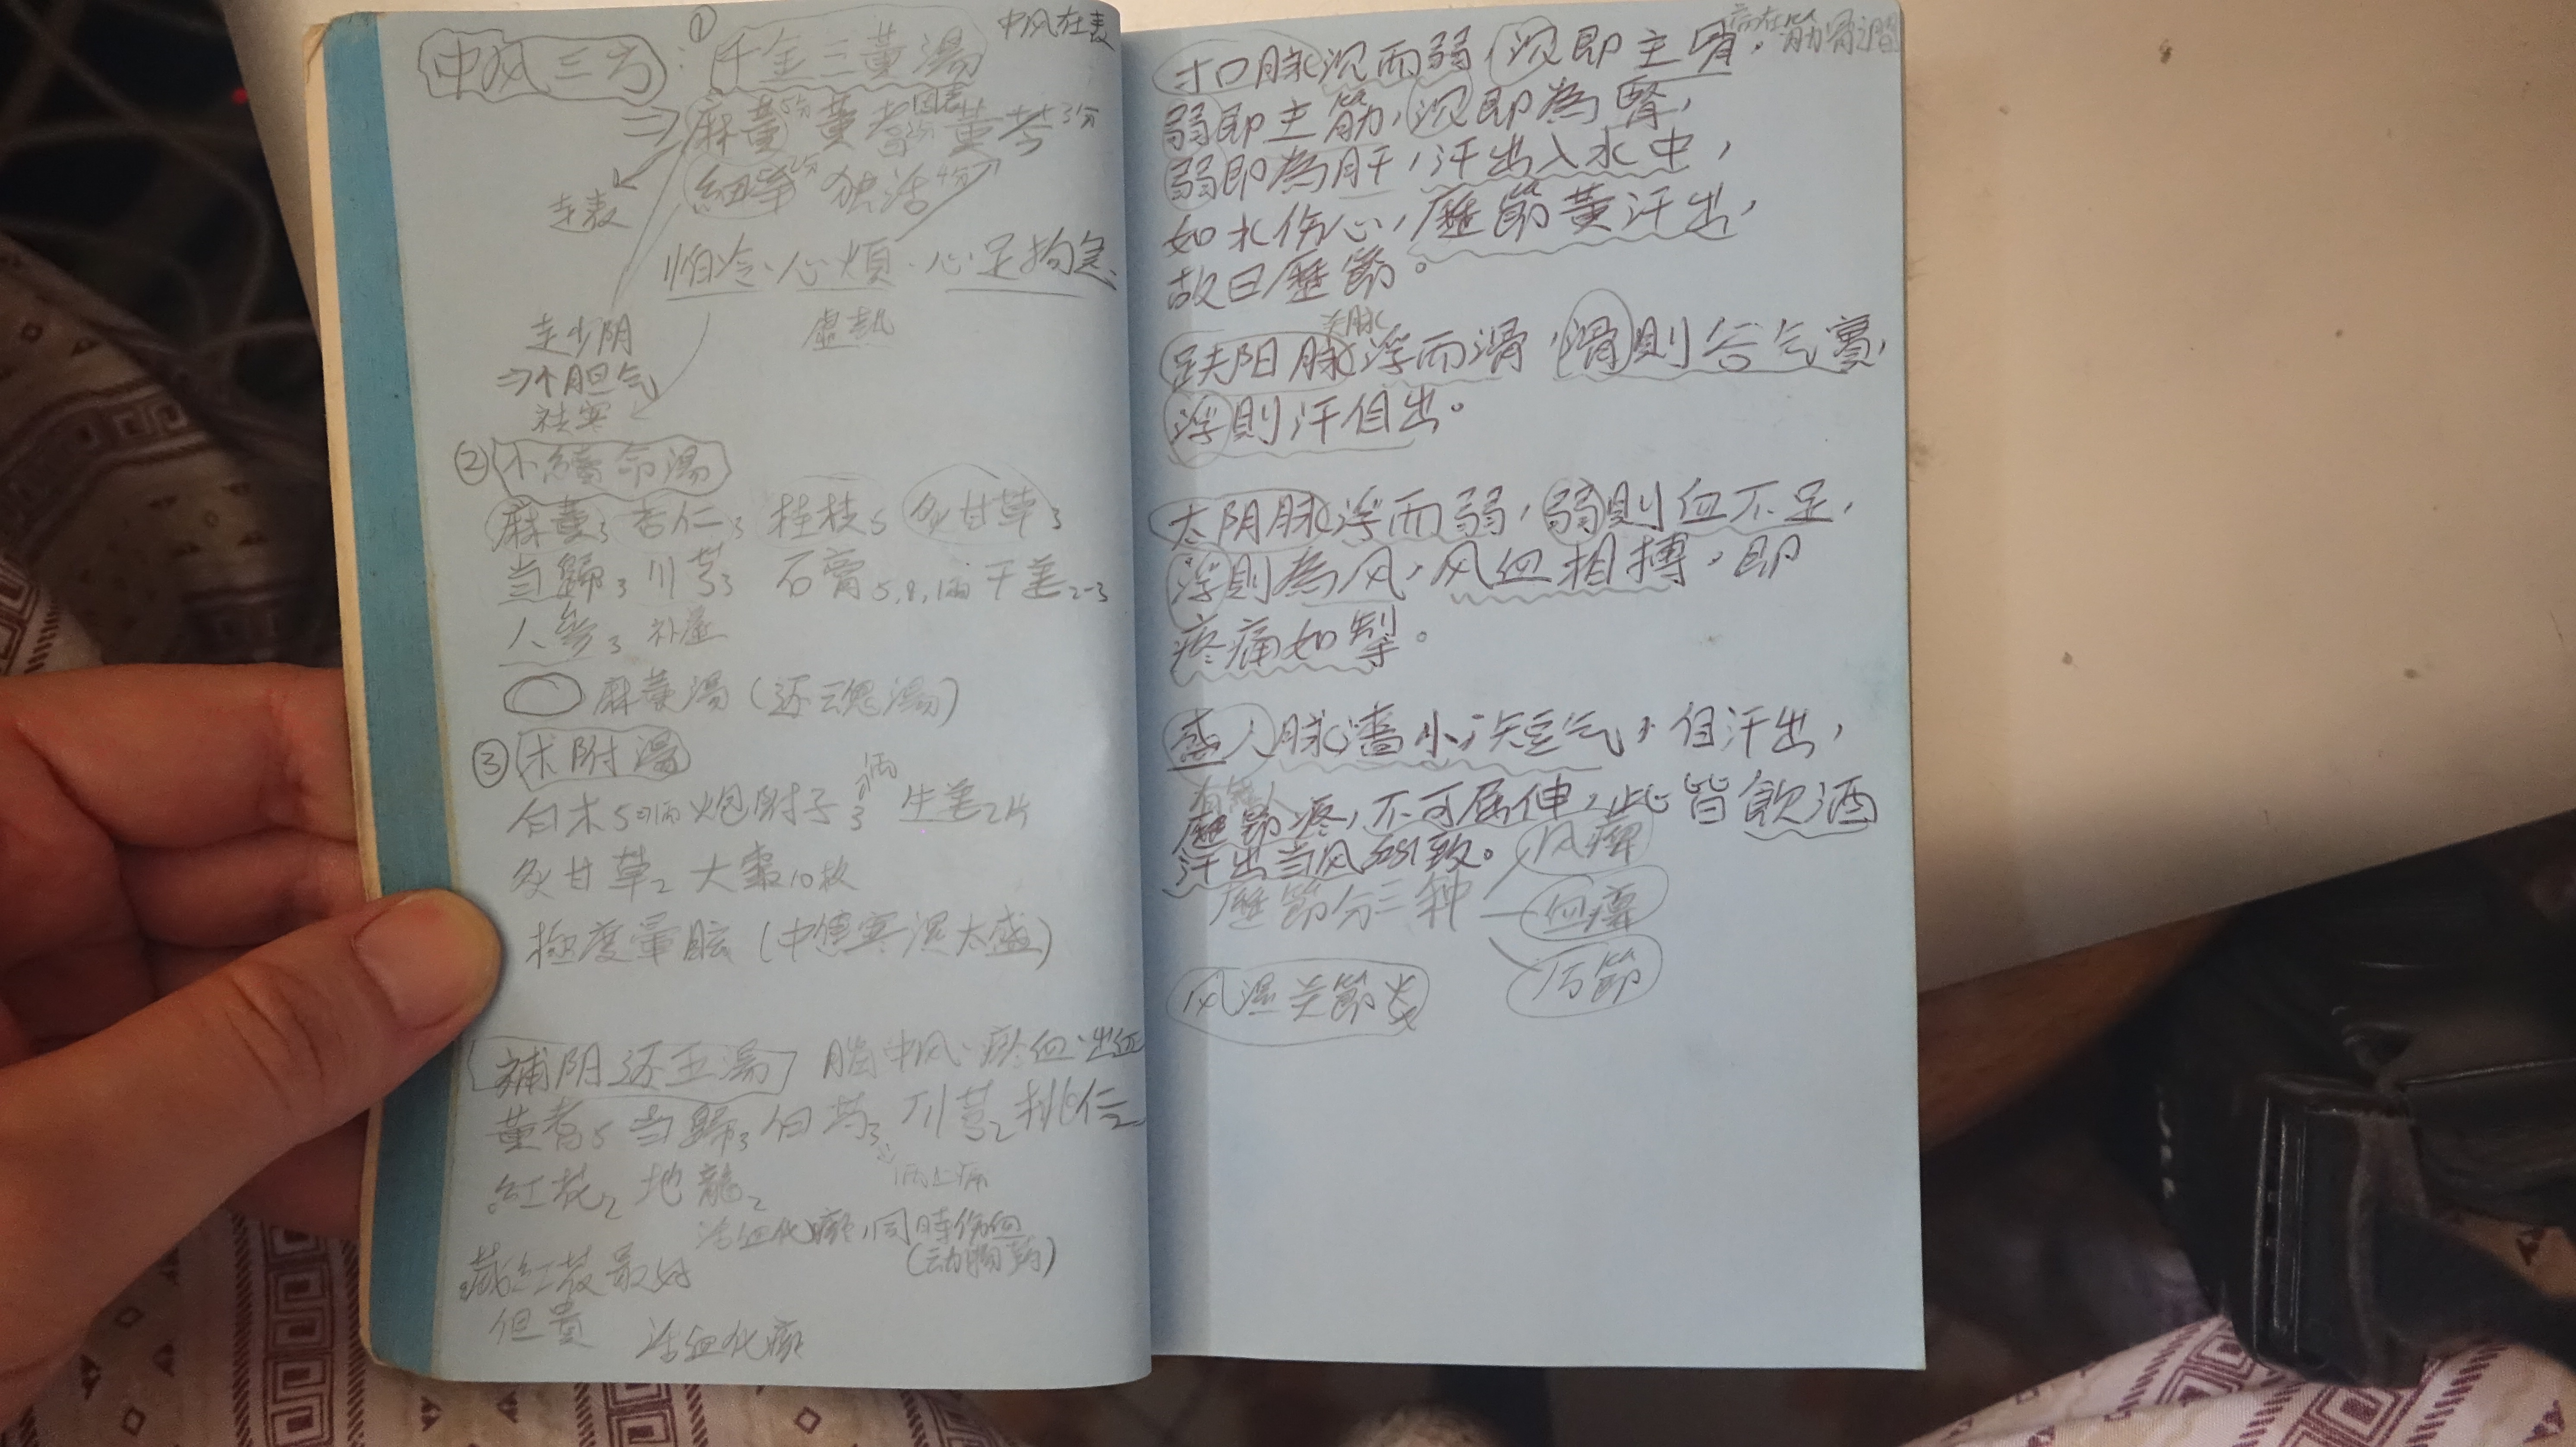 中风三方：① 千金三黄湯 中风在表
⇒ 麻黄5分 黄耆2分 固表 黄芩3分
細辛2分 独活4分
走表
怕冷、心煩、心足拘急、
走少阴 虚热
⇒个胆气
祛寒
② 小續命湯
麻黄3 杏仁3 桂枝5 炙甘草3
当歸3 川芎3 石膏5,8,1両 干姜2-3
人參3 补虛
麻黄湯（还魂湯）
③ 术附湯
白术5 炮附子3 生姜2片
炙甘草2 大棗10枚
極度暈眩（中焦寒湿太盛）
補阳还五湯 脑中风、瘀血、出血
黄耆5 当歸3 白芍3 川芎2 桃仁2
紅花2 地龍2 止痛
活血化瘀，同時伤血
（动物药）
藏红花最好
但貴 活血化瘀
寸口脉沉而弱，沉即主骨， 病在筋骨間
弱即主筋，沉即為腎，
弱即為肝，汗出入水中，
如水伤心，歷節黄汗出，
故曰歷節。
趺阳脉浮而滑，滑則谷气實，
浮則汗自出。
太阴脉浮而弱，弱則血不足，
浮則為风，风血相搏，即
疼痛如掣。
盛人脉濇小，短气，自汗出，
歷節疼，不可屈伸，此皆飲酒
汗出当风所致。
歷節分三种 风痺
血痺
历節
风湿关節炎